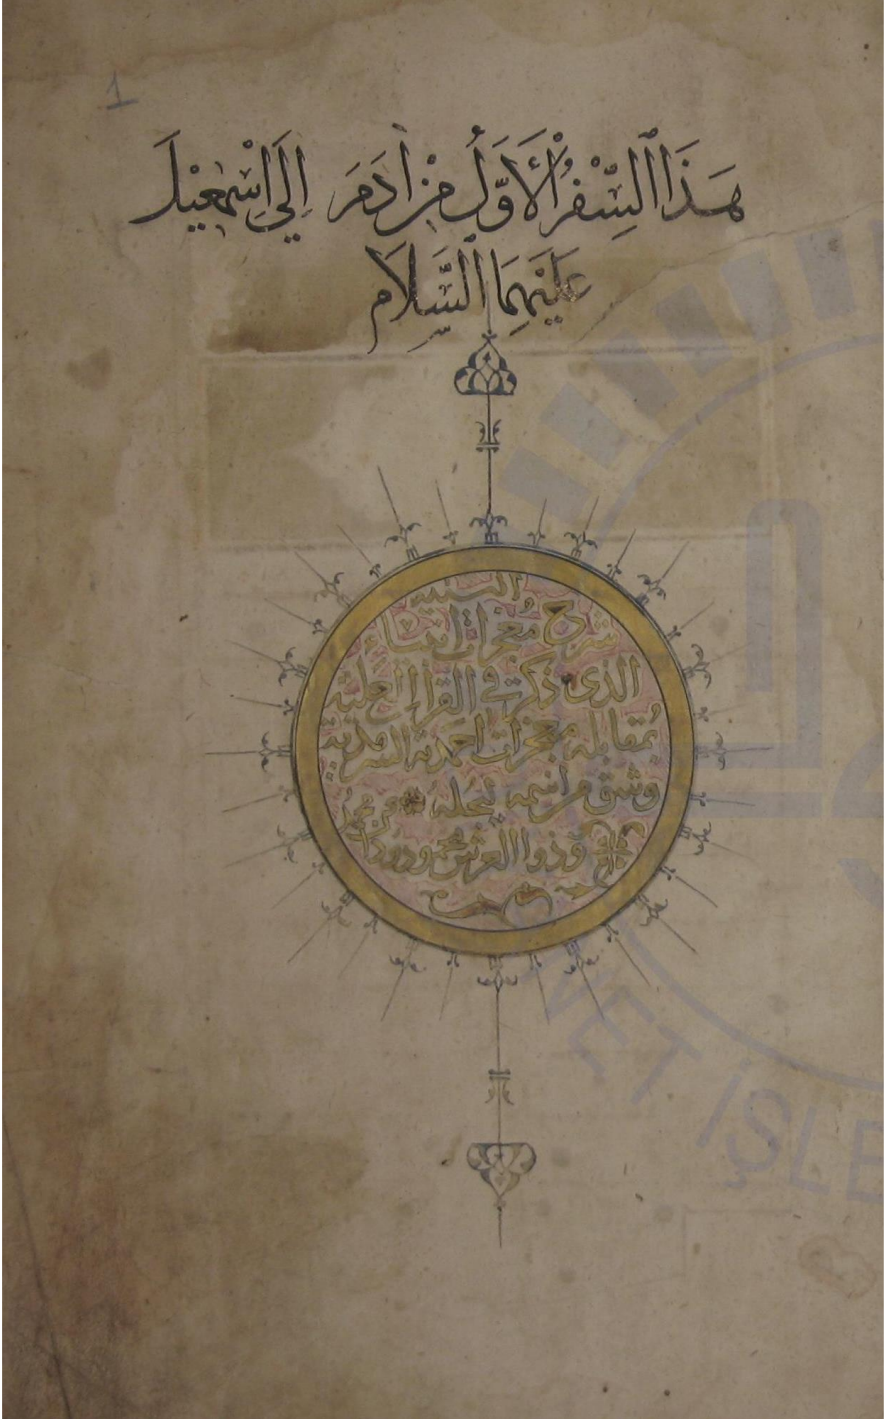 1
هَذَا السِّفْرُ الْأَوَّلُ مِنْ آدَمَ إِلَى إِسْمٰعِيْلَ
عَلَيْهِمَا السَّلَام
السنية
شرح معجزات انبياء
الذى ذكرت فى القرآن العلية
بمقابلة معجزات احمدية السرمدية
وشق من اسمه ليجله
وذوا العرش محمود
VET İŞLE